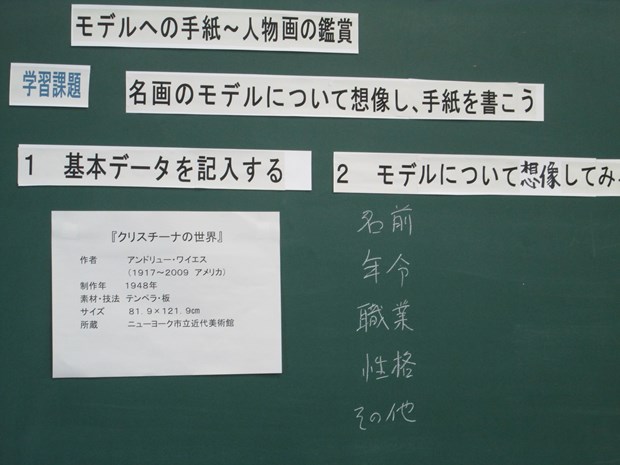 モデルへの手紙～人物画の鑑賞
学習課題
名画のモデルについて想像し、手紙を書こう
1 基本データを記入する
『クリスチーナの世界』
作者 アンドリュー・ワイエス
(1917～2009 アメリカ)
制作年 1948年
素材・技法 テンペラ・板
サイズ 81.9×121.9cm
所蔵 ニューヨーク市立近代美術館
2 モデルについて想像してみ
名前
年令
職業
性格
その他